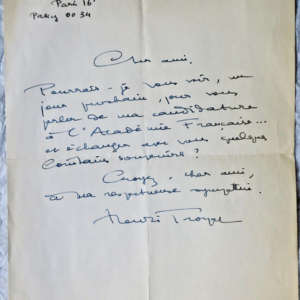 Paris 16e
Passy 00 34
Cher ami,
Pourrais-je vous voir, un
jour prochain, pour vous
parler de ma candidature
à l'Académie Française...
et échanger avec vous quelques
lointains souvenirs ?
Croyez, cher ami,
à ma respectueuse sympathie.
Henri Troyat